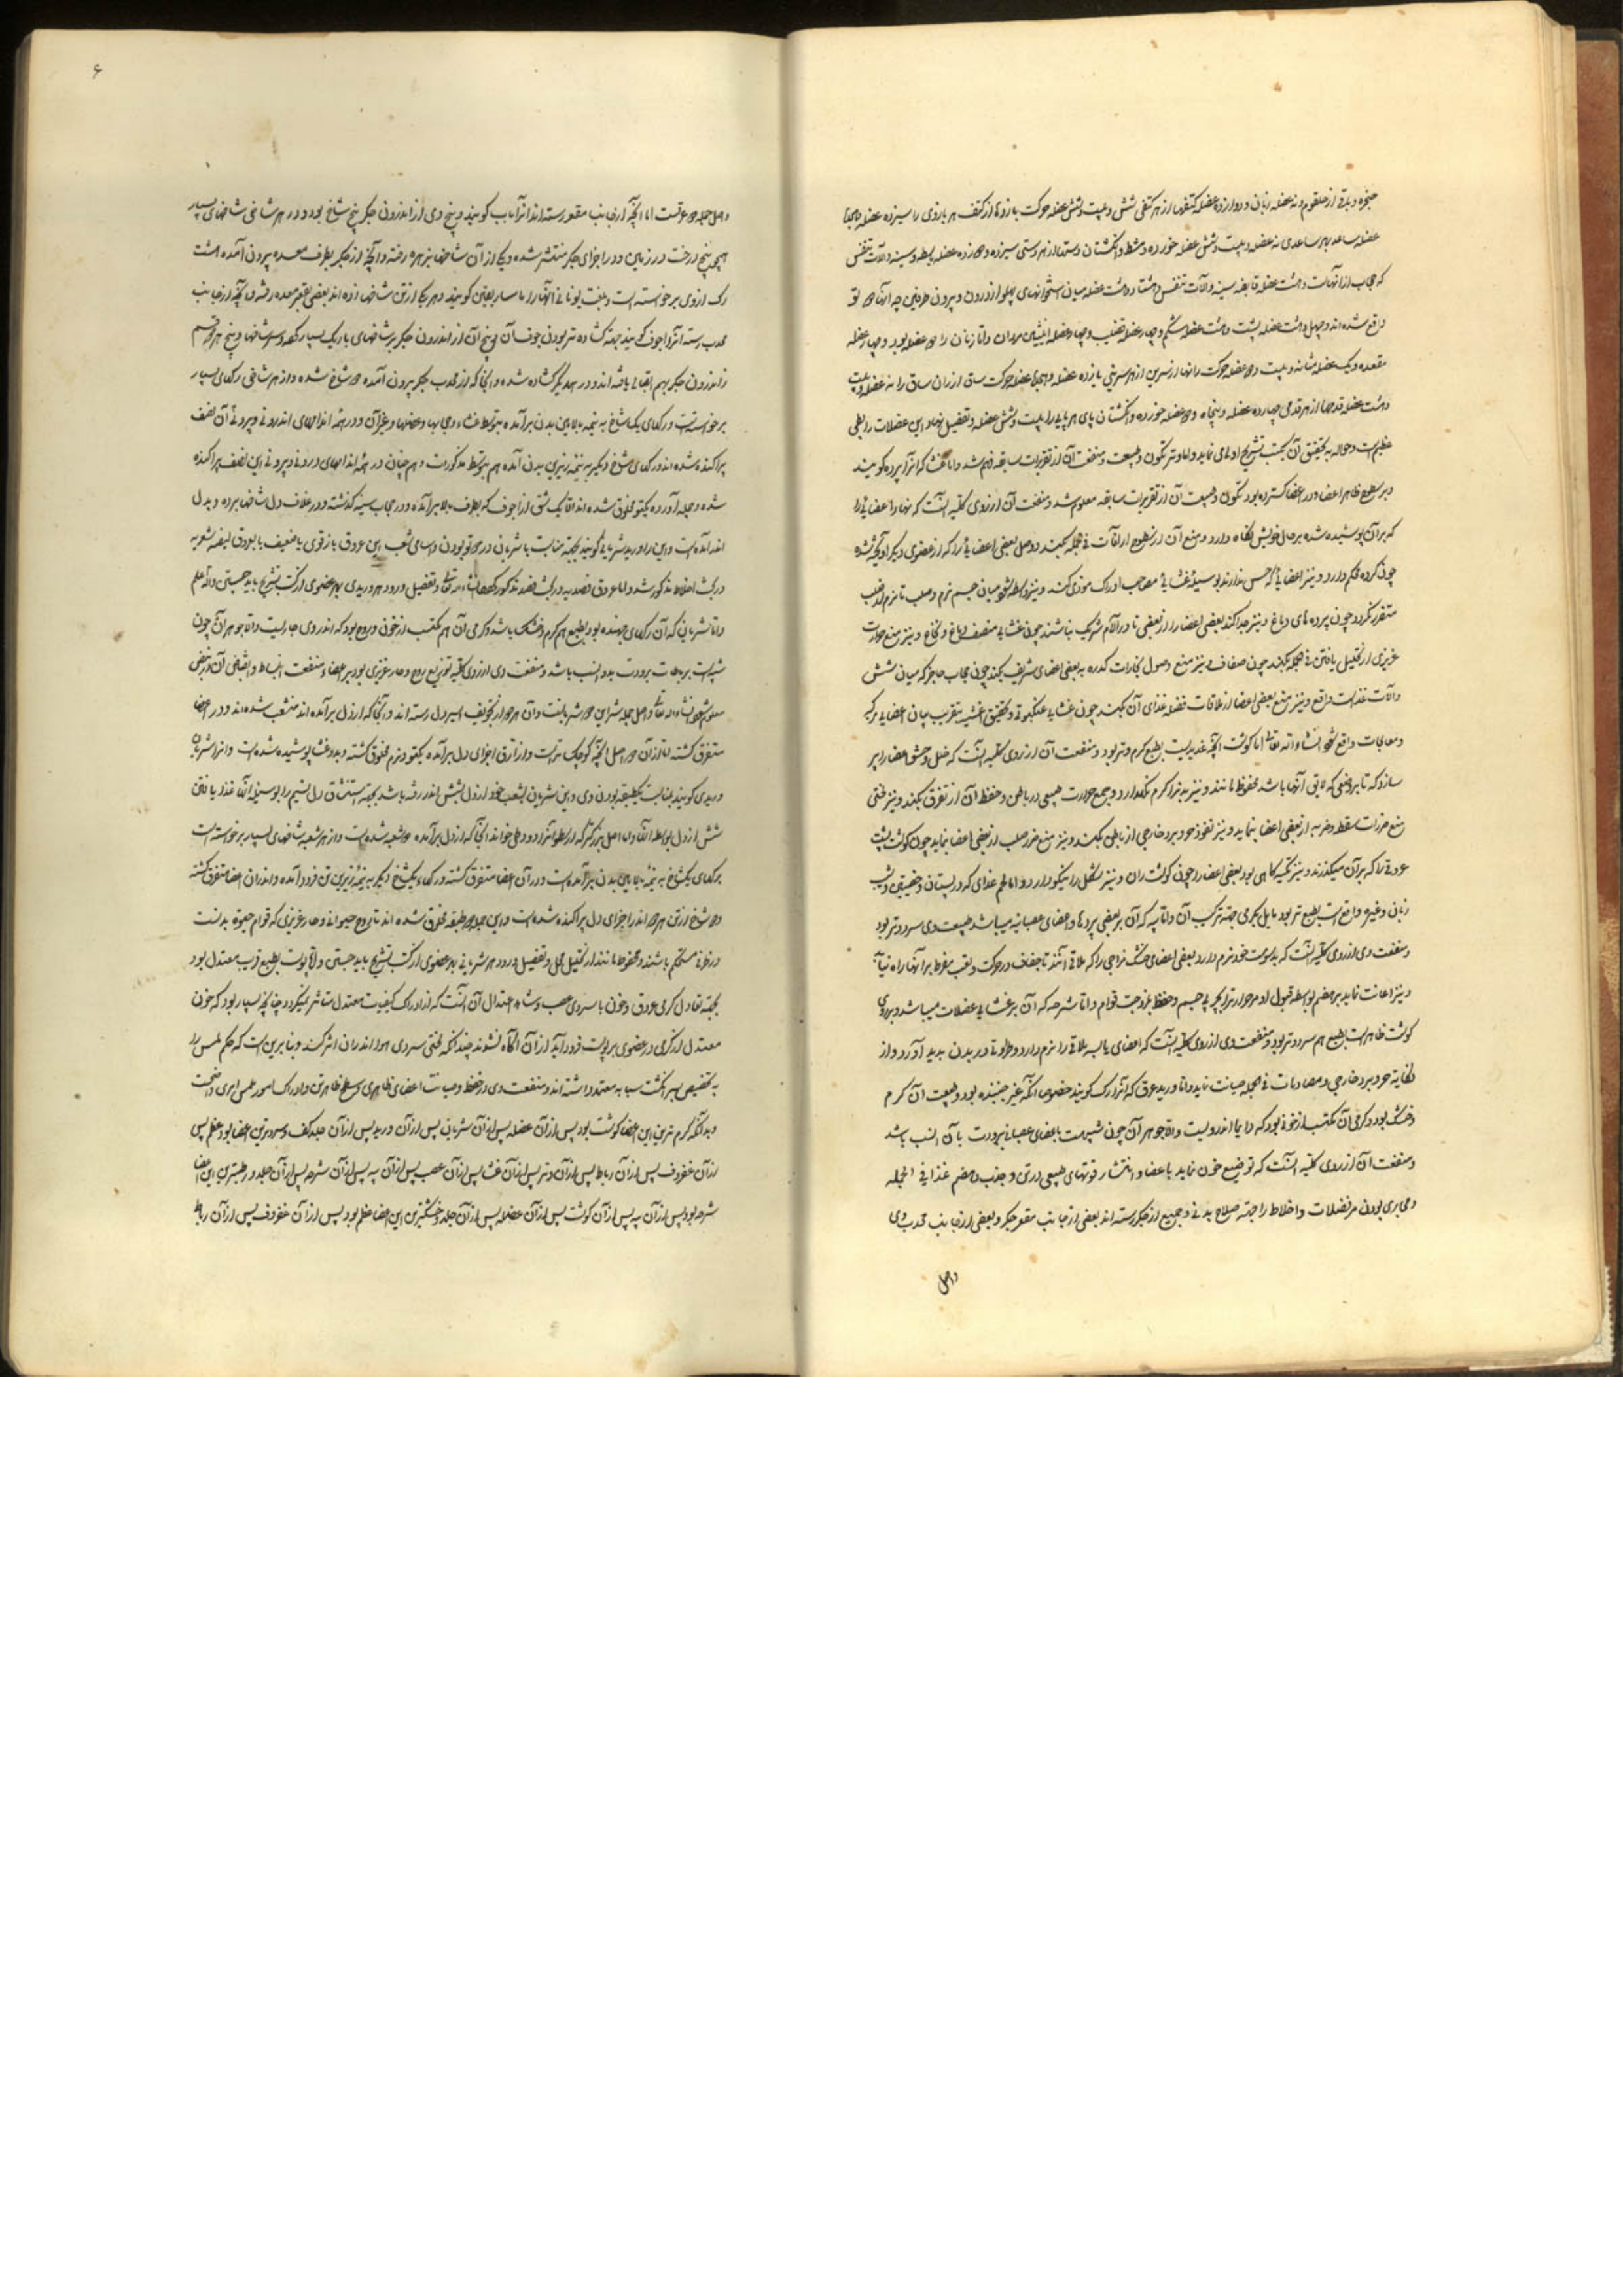 حنجره و باقی از حلقوم و نه عضله زبان و دوازده عضله کتفها از هر کتفی شش و بیست و شش عضله حرکت بازوها از کتف هر بازوی را سیزده عضله
عضله ساعد بهر ساعدی نه عضله و بیست و شش عضله خورده و مشط و انگشتان دستها از هر دستی سیزده
که حجاب از آنهاست و هشت عضله قابضه سینه و آلات تنفس و هشتاد و هشت عضله میان استخوانهای پهلو از درون و بیرون
واقع شده اند و چهل و هشت عضله پشت و هشت عضله شکم و چهار عضله قضیب و چهار عضله انثیین مردان و اما زنان را دو عضله بود و چهار عضله
مقعده و یک عضله مثانه و بیست و دو عضله حرکت رانها از سرین از هر سرینی یازده عضله و عضله حرکت ساق از ران ساق را نه عضله
و هشت عضله قدمها از هر قدمی چهارده عضله و پنجاه و دو عضله خورده و انگشتان پای هر پای را بیست و شش عضله و تفصیل نهاد این عضلات را بطی
عظیم است و حواله به تحقیق آن بکتب تشریح اولی می نماید و اما وتر تکون و طبیعت و منفعت آن از تقریرات سابقه فهم شد و اما غشا که آنرا پرده گویند
و بر سطح ظاهر اعضا و در اعضا گسترده بود تکون و طبیعت آن از تقریرات سابقه معلوم شد و منفعت آن از روی کلیه آنست که نهاد اعضائی را
که بر آن پوشیده شده بر حال خویش نگاه دارد و منع آن از آفات فی الجمله بکند و وصل بعضی اعضائی را که از عضوی دیگر آویخته شده
چون گرده محکم دارد و نیز اعضائی که حس ندارند بوسیله غشائی مصاحب ادراک موذی کند و نیز واسطه شود میان جسم نرم و صلب تا نرم از صلب
متضرر نگردد چون پرده های دماغ و نیز جدا کند بعضی اعضا را از بعضی تا در آلام شریک نباشند چون غشائی منصف دماغ و نخاع و نیز منع حرارت
غریزی از تحلیل یافتن فی الجمله بکند چون صفاق و نیز منع وصول بخارات کدره به بعضی اعضای شریف بکند چون حجاب حاجز که میان شش
و آلات غذاست واقع و نیز منع بعضی اعضا از ملاقات فضله غذای آن بکند چون غشائی عنکبوتی و تحقیق اغشیه بتقریب بیان اعضائی مرکبه
و معالجات واقع شود انشاء الله تعالی اما گوشت آنچه غددی نیست بطبع گرم و تر بود و منفعت آن از روی کلیه آنست که خلل و حشو اعضا را پر
سازد که تا بر وضعی که لایق آنها باشد محفوظ مانند و نیز بدن را گرم نگهدارد و جمع حرارت طبیعی در باطن و حفظ آن از تفرق بکند و نیز فی
منع ضررات سقطه و ضربه از بعضی اعضا بنماید و نیز نفوذ حر و برد خارجی از باطن بکند و نیز منع ضرر صلب از بعضی اعضا نماید چون گوشت پشت
عروقی را که بر آن میگذرند و نیز تکیه گاهی بود بعضی اعضا را چون گوشت ران و نیز شکل را نیکو دارد و اما لحم غددی که در پستان و خصیتین و
زبان و غیره واقع است بطبع تر بود مایل بگرمی جهته ترکیب آن و اما پیه که آن بر بعضی پردها و اعضای عصبانیه میباشد طبیعت وی سرد و تر بود
و منفعت وی از روی کلیه آنست که بدسومت خود نرم دارد بعضی اعضای خشک مزاجی را که ملاقی آنند تا جفاف در حرکت و تعب مفرط بر آنها راه نیابد
و نیز اعانت نماید بر هضم بواسطه قبول او مر حرارت را و حفظ و اما شرحه که آن بر غشائی عضلات میباشد و بر روی
گوشت ظاهر است بطبع هم سرد و تر بود و منفعت وی از روی کلیه آنست که اعضای یابسه ملاقی را نرم دارد و طراوتا در بدن پدید آورد و از
نکایه حر و برد خارجی و مصادمات فی الجمله صیانت نماید و اما ورید عرقی که آنرا رگ گویند خصوصا آنکه غیر جهنده بود و طبیعت آن گرم
و خشک بود و گرمی آن مکتسب از خونی بود که دایما اندر ویست و الا جوهر آن چون شبیهست باعضای عصبانی ببرودت بآن انسب باشد
و منفعت آن از روی کلیه آنست که توضیع خون نماید باعضا و انتشار قوتهای طبیعی در تن و جذب و هضم غذا فی الجمله
و مجاری بودن مر فضلات و اخلاط را جهته صلاح بدنی و جمیع از جگر رسته اند بعضی از جانب مقعر جگر و بعضی از جانب محدب وی
واصل
۶
و اصل جمله دو عرقست اما آنچه از جانب مقعر رسته اند آنرا باب گویند و بیخ وی از اندرون جگر پنج شاخ بود و در هر شاخی شاخهای بسیار
همچو بیخ درخت در زمین و در اجزای جگر منتشر شده و یکی از آن شاخها بزهره رفته و آنچه از جگر بطرف معده بیرون آمده هشت
رگ از وی برخاسته است و بلغت یونانی آنها را ماساریقی گویند و هر یکی از این شاخها زده اند بعضی بقعر معده رفته و آنچه از جانب
محدب رسته آنرا اجوف گویند جهته گشاده تر بودن جوف آن و بیخ آن از اندرون جگر بر شاخهای باریک بسیار گشته و سر شاخها و بیخ هر دو قسم
از اندرون جگر بهم اتصالی یافته اند و در یکدیگر گشاده شده و آنجا که از محدب جگر بیرون آمده دو شاخ شده و از هر شاخی رگهای بسیار
برخاسته است و رگهای یک شاخ به نیمه بالایین بدن برآمده بتوسط غشاء و حجابها و عضلها و غیر آن و در همه اندامهای اندرونی و بیرونی آن نصف
پراکنده شده اند و رگهای شاخ دیگر به نیمه زیرین بدن آمده هم بتوسط مذکورات و همچنان در همه اندامهای درونی و بیرونی این نصف پراکنده
شده و جمله آورده یکتو مخلوق شده اند الا یک شق از اجوف که بطرف بالا برآمده و در حجاب سینه گذشته و در غلاف دل شاخها برده و بدل
اندر آمده است و این را ورید شریانی گویند بجهته مناسبت با شریان در دو تو بودن و اسامی شعب این عروق
در بحث اخلاط مذکور شد و اما عروق فصد در بحث فصد مذکور خواهد گشت انشاء الله تعالی و تفصیل ورود هر وریدی بهر عضوی از کتب تشریح باید جستن والله اعلم
و اما شریان که آن رگهای جهنده بود بطبع هم گرم و خشک باشد و گرمی آن هم مکتسب از خون و روح بود که اندر وی جاریست و الا جوهر آن چون
شبیه است برباطات ببرودت بدو انسب باشد و منفعت وی از روی کلیه توزیع روح و حار غریزی بود بر اعضاء و منفعت انبساط و انقباض آن در نبض
معلوم شود انشاء الله تعالی و اصل جمله شرایین دو شریانست و آن هر دو از تجویف ایسر دل رسته اند و آنجا که از دل برآمده اند منشعب شده اند و در اعضا
متفرق گشته اما از آن دو اصل آنچه کوچک تر است و از ارق اجزای دل برآمده یکتو و نرم مخلوق گشته و بدو غشا پوشیده شده است و آنرا شریان
وریدی گویند بمناسبت یکطبقه بودن وی و این شریان بشعب خود از دل بشش اندر رفته باشد بجهته استنشاق دل نسیم را بوسیله آنها و غذا یافتن
شش از دل بواسطه آنها و اما اصل بزرگتر که ارسطو آنرا اورطی خواند آنجا که از دل برآمده دو شعبه شده است و از هر شعبه شاخهای بسیار برخاسته است
رگهای یکشاخ به نیمه بالایین بدن برآمده است و در آن اعضا متفرق گشته و رگهاء یکشاخ دیگر به نیمه زیرین تن فرود آمده و اندر آن اعضا متفرق گشته
و دو شاخ ازین هر دو اندر اجزای دل پراکنده شده است و این دو طبقه مخلوق شده اند تا روح حیوانی و حار غریزی که قوام حیوة بدنست
در ظرفی مستحکم باشند و محفوظ مانند از تحلیل و تفصیل ورود هر شریانی بهر عضوی از کتب تشریح باید جستن و اما پوست بطبع قریب معتدل بود
بجهته تعادل گرمی عروق و خون با سردی عصب و نشاء اعتدال آن آنست که از ادراک کیفیات معتدل متاثر نمیگردد چنانچه بسیار بود که خون
معتدل از گرمی در عضوی بر پوست فرود آید از آن آگاه نشوند چندانکه لختی سردی هوا اندر آن اثر کند و بنابرین است که حکم لمس را
به تخصیص سر انگشت سبابه معتمد داشته اند و منفعت وی در حفظ و صیانت اعضای ظاهری و سطح ظاهر تن و ادراک امور لمسی امری واضحست
و بدانکه گرم ترین این اعضا گوشت بود پس از آن عضله پس از آن شریان پس از آن ورید پس از آن جلد کف و سردترین اعضا بود عظم پس
از آن غضروف پس از آن رباط پس از آن وتر پس از آن غشا پس از آن عصب پس از آن پیه پس از آن شرحه پس از آن جلد و رطبترین این اعضا
شرحه بود پس از آن پیه پس از آن گوشت پس از آن عضله پس از آن جلد و خشکترین این اعضا عظم بود پس از آن غضروف پس از آن رباط